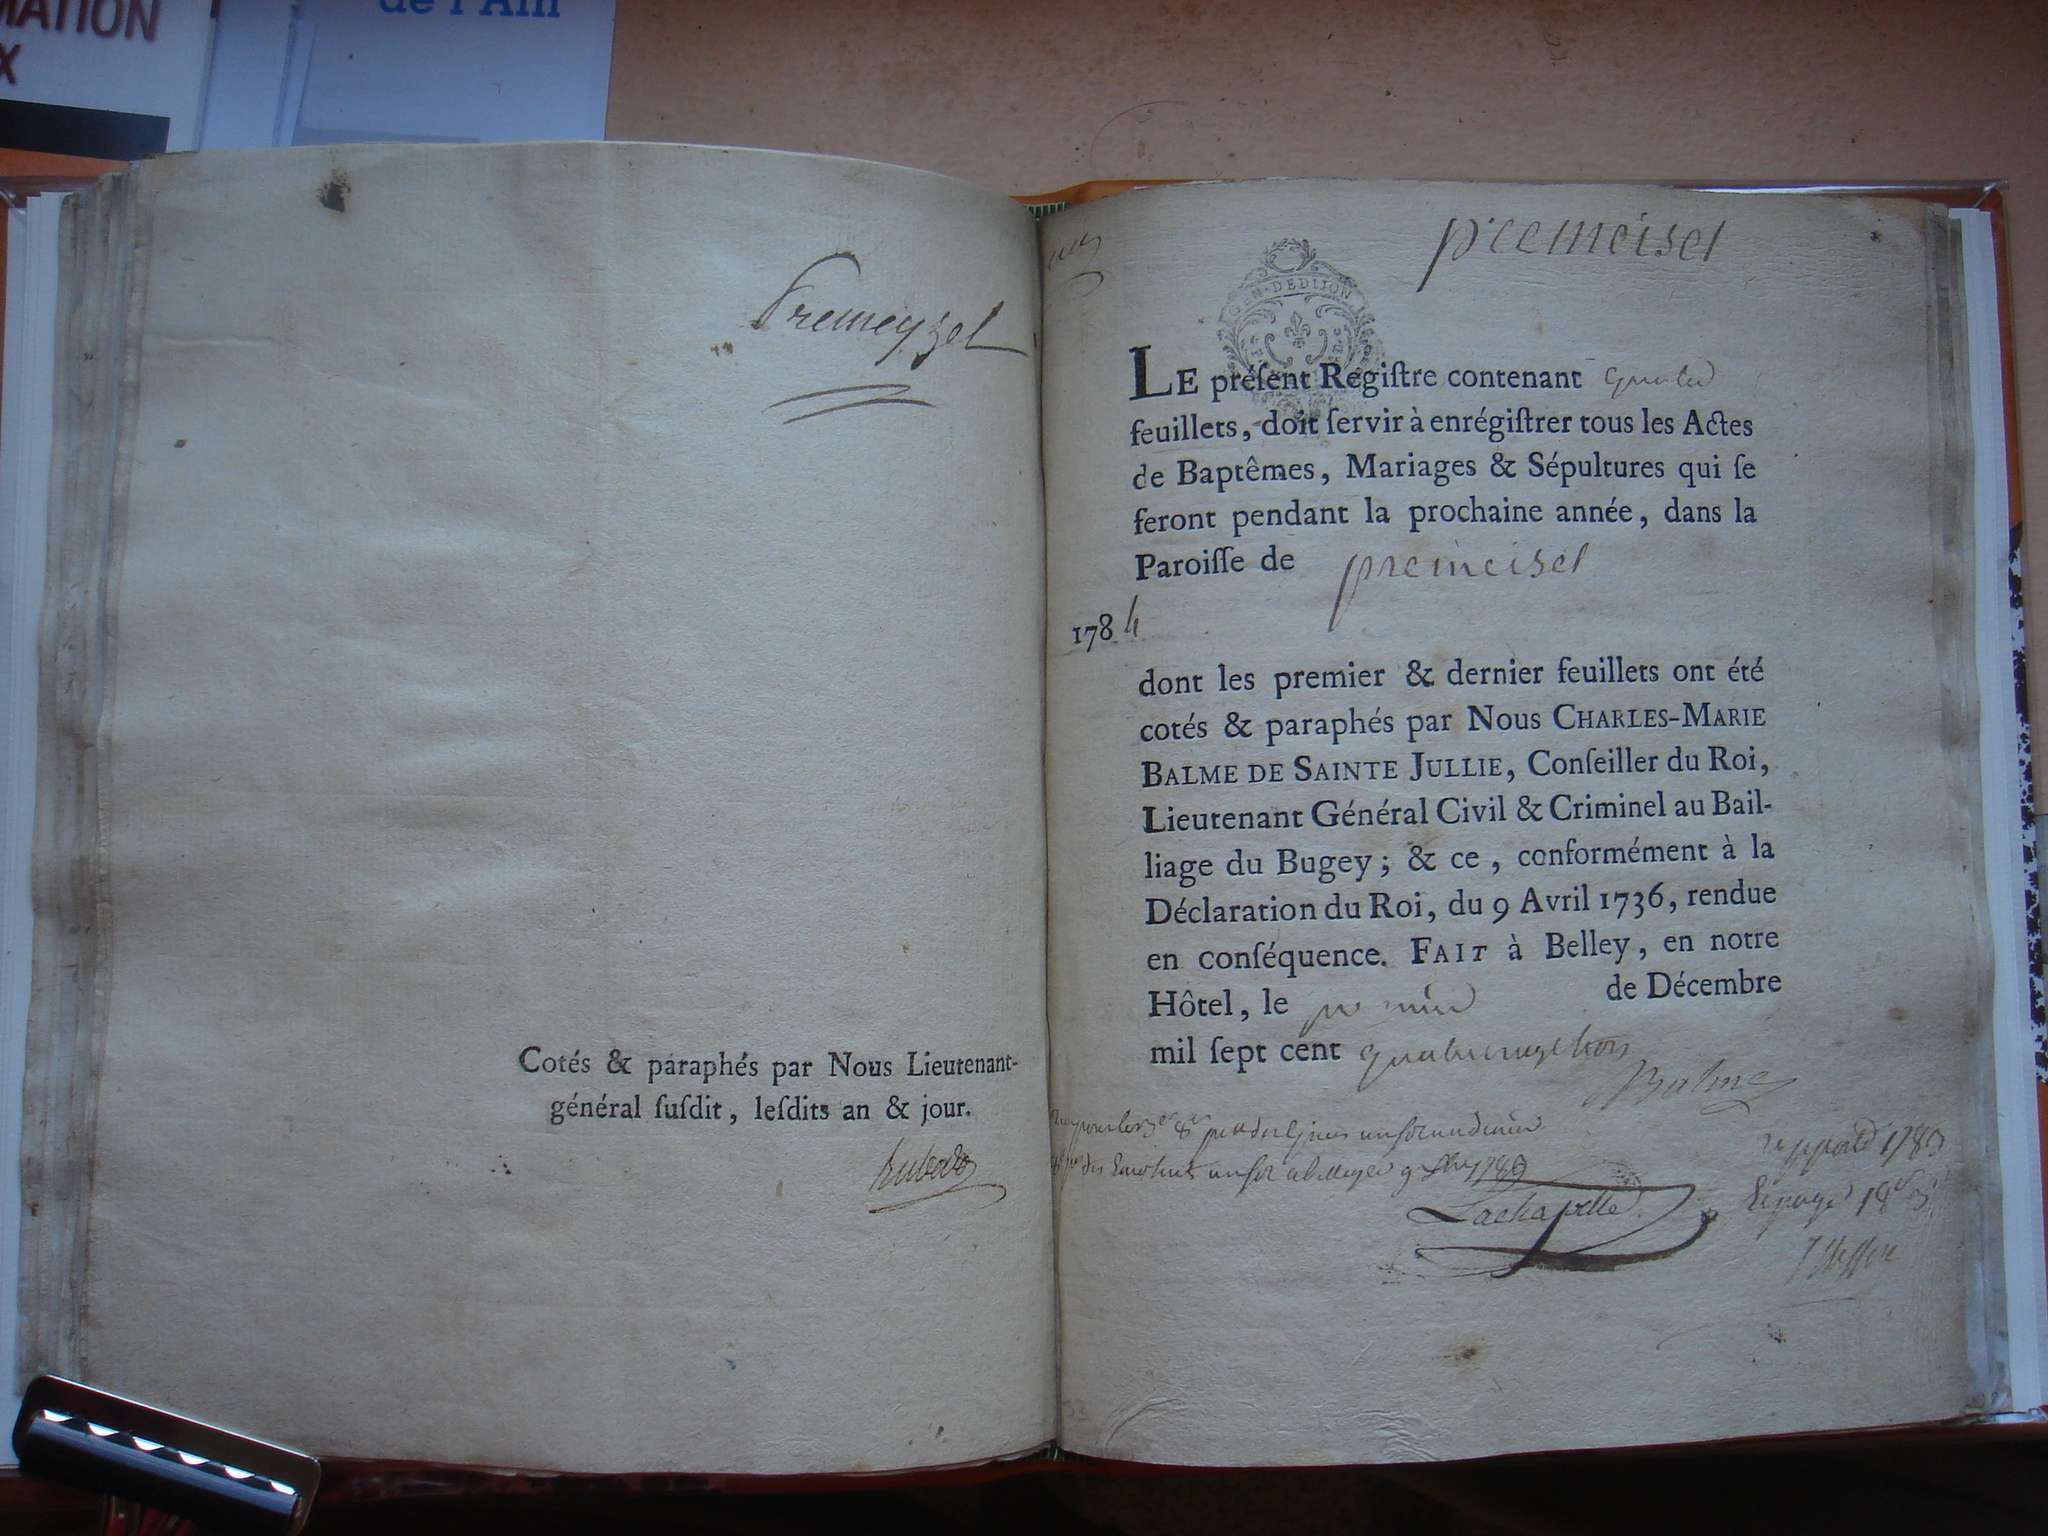 MATION
X
de l'Ain
Premeyzel
Cotés & paraphés par Nous Lieutenant-
général ſuſdit, leſdits an & jour.
premeisel
GEN·DEDIJON
LE préſent Regiſtre contenant quatre
feuillets, doit ſervir à enrégiſtrer tous les Actes
de Baptêmes, Mariages & Sépultures qui ſe
feront pendant la prochaine année, dans la
Paroiſſe de premeisel
1784
dont les premier & dernier feuillets ont été
cotés & paraphés par Nous CHARLES-MARIE
BALME DE SAINTE JULLIE, Conſeiller du Roi,
Lieutenant Général Civil & Criminel au Bail-
liage du Bugey; & ce, conformément à la
Déclaration du Roi, du 9 Avril 1736, rendue
en conſéquence. FAIT à Belley, en notre
Hôtel, le premier de Décembre
mil ſept cent quatrevingt trois
Balme
Lachapelle